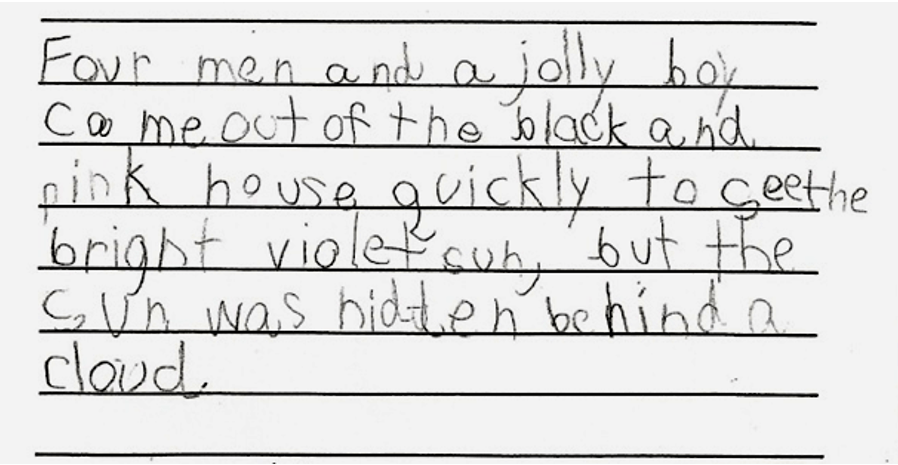 Four men and a jolly boy
came out of the black and
pink house quickly to seethe
bright violet sun, but the
sun was hidden behind a
cloud.